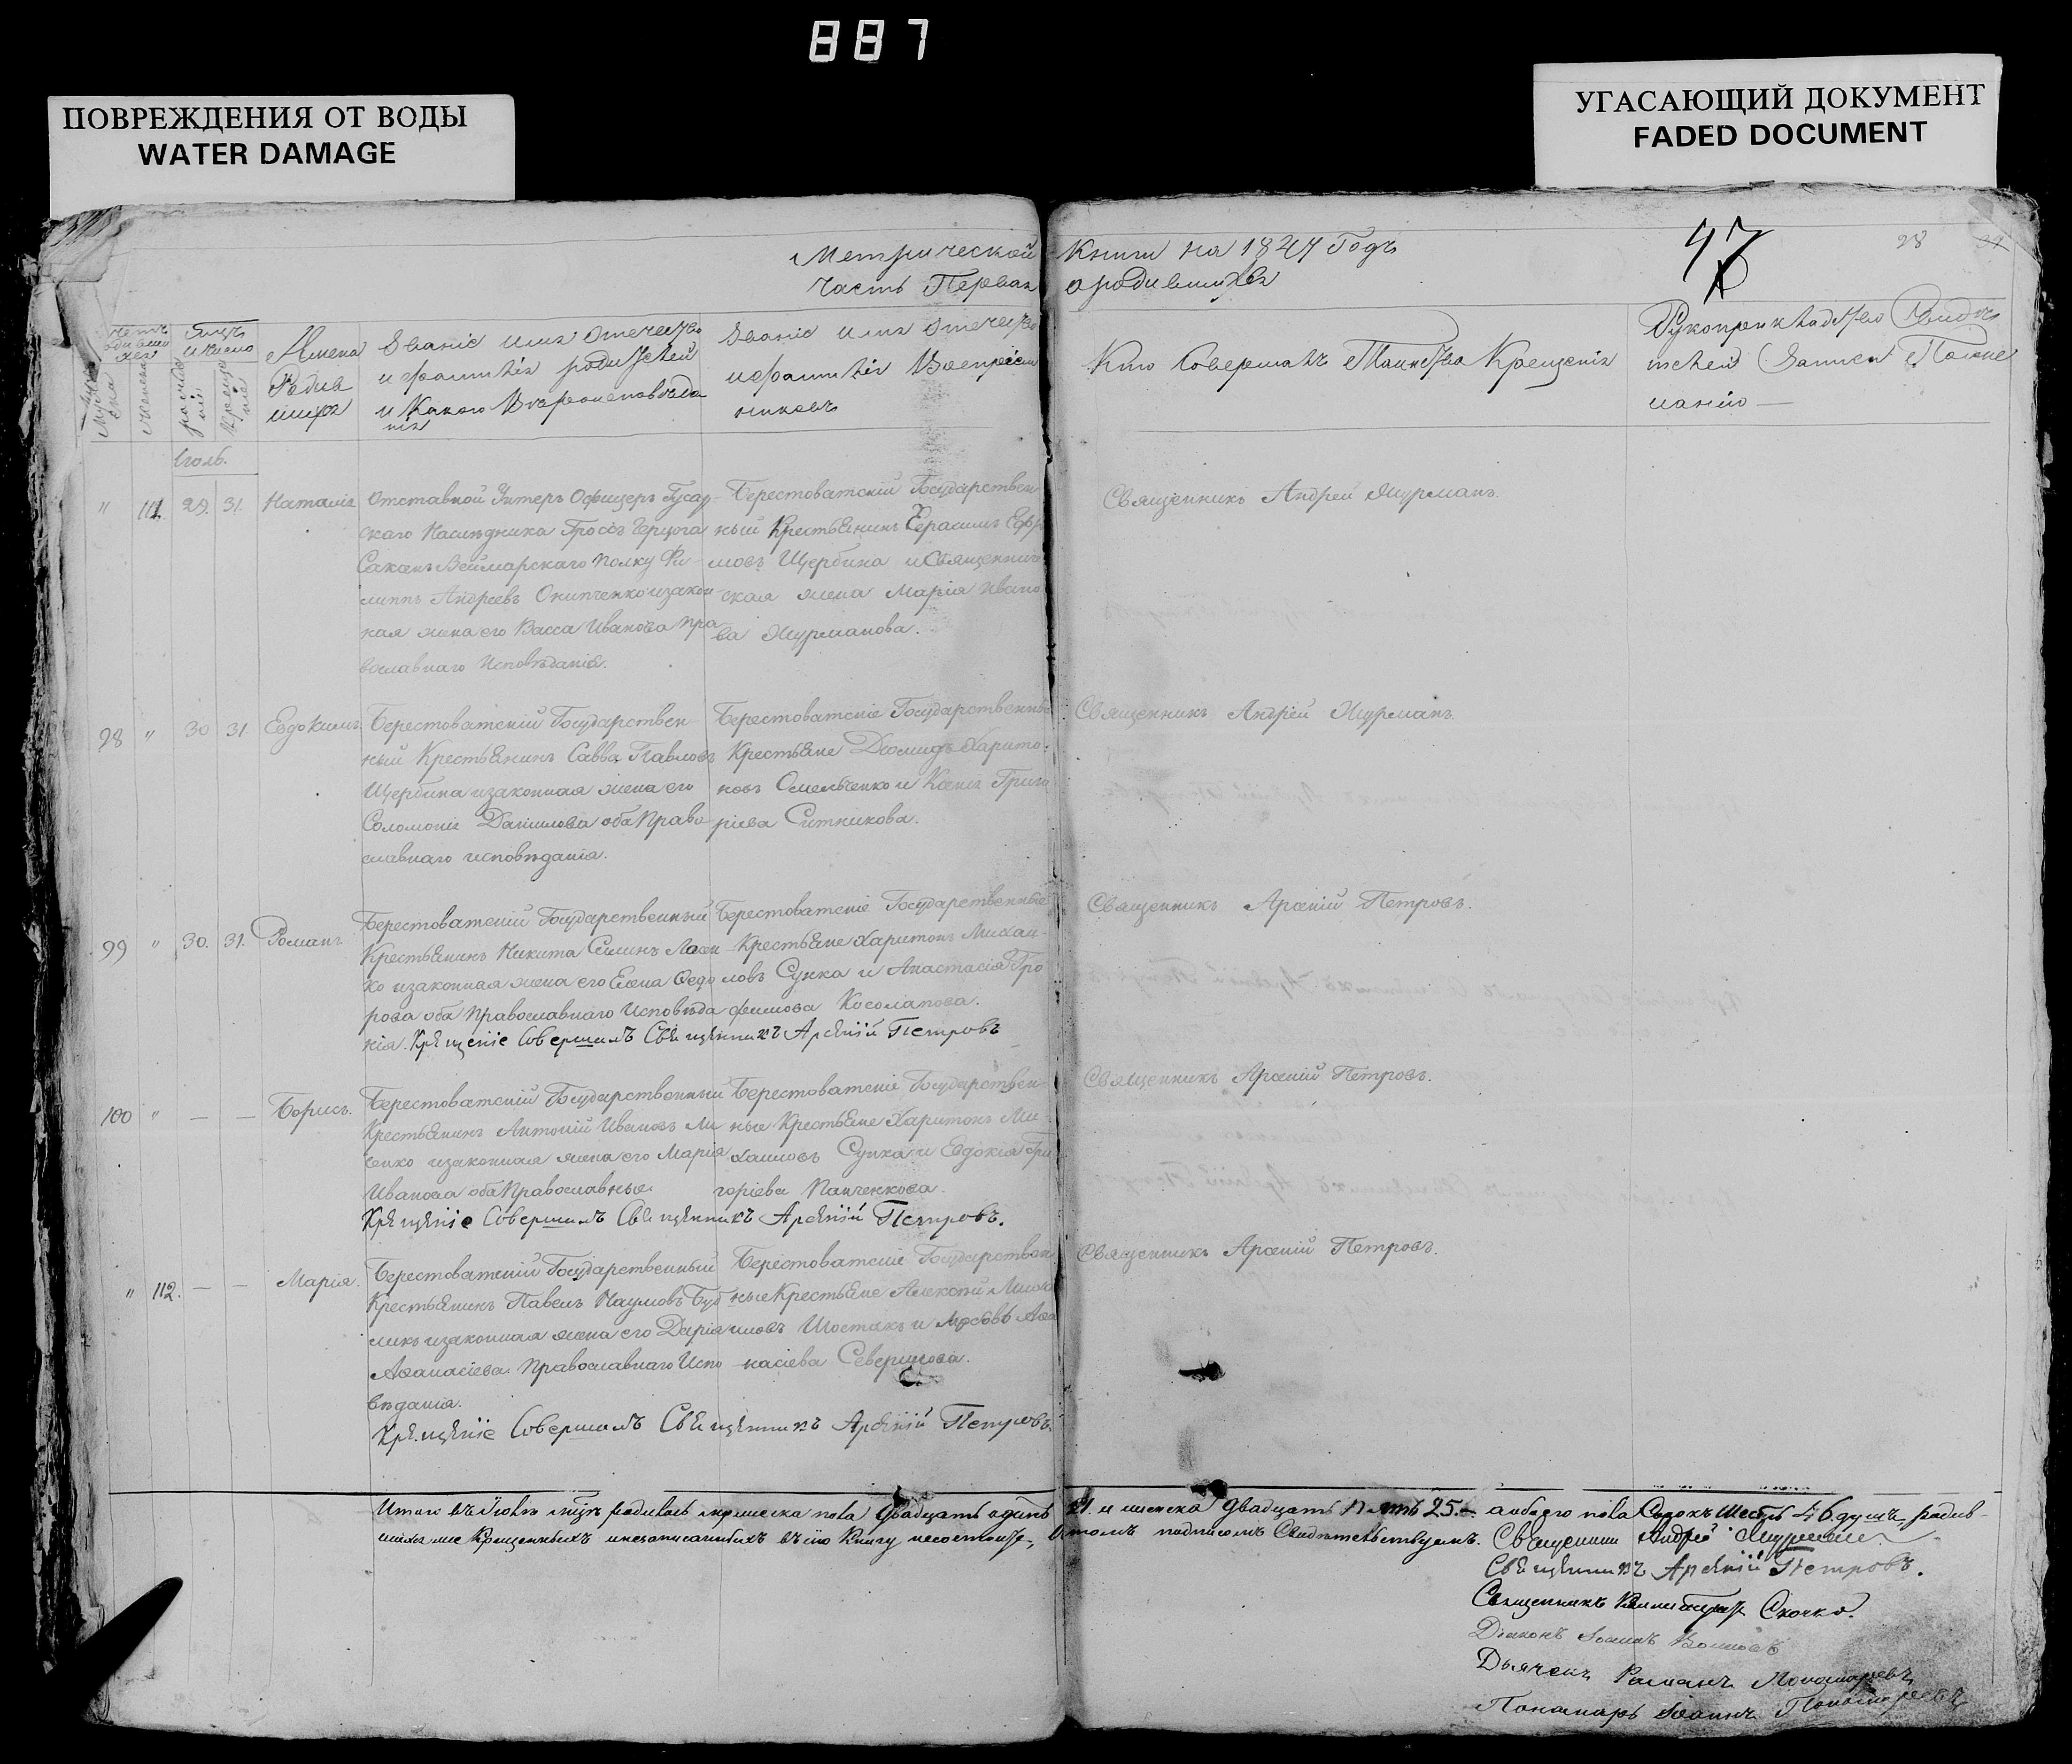 887
ПОВРЕЖДЕНИЯ ОТ ВОДЫ
WATER DAMAGE
УГАСАЮЩИЙ ДОКУМЕНТ
FADED DOCUMENT
Метрической Книги на 1847 Годъ
47
28
Часть Первая о родившихся
Имена Родив шихся
Званіе имя отечество
и фамилія родителей
и какого Вѣроисповѣда
нія
Званіе имя отечество
и фамилія Воспріем
никовъ
Кто Совершалъ Таинство Крещенія
Рукоприкладство Свидѣ
телей Записи Поже
ланію
Іюль.
" 111. 29. 31. Наталія
Отставной Унтеръ Офицеръ Гусар-
скаго Наслѣдника Гроссъ Герцога
Саксенъ Веймарскаго полку Фи-
липпъ Андреевъ Онипченко и закон
ная жена его Васса Иванова пра-
вославнаго Исповѣданія.
Берестоватскій Государствен
ный Крестьянинъ Герасимъ Ефи
мовъ Щербина и Священниче
ская жена Марія Ивано
ва Журманова.
Священникъ Андрей Журманъ.
98 " 30 31 Евдокимъ
Берестоватскій Государствен-
ный Крестьянинъ Савва Павловъ
Щербина и законная жена его
Соломонія Данилова оба Право-
славнаго исповѣданія.
Берестоватскіе Государственные
Крестьяне Діомидъ Харито-
новъ Омельченко и Ксенія Григо
ріева Ситникова.
Священникъ Андрей Журманъ.
99 " 30. 31. Романъ
Берестоватскій Государственный
Крестьянинъ Никита Симинъ
ко и законная жена его Елена Ѳедо
рова оба православнаго Исповѣда
нія. Крещеніе Совершилъ Священникъ Арсеній Петровъ
Берестоватскіе Государственные
Крестьяне Харитонъ Михаи-
ловъ Супка и Анастасія Тро
фимова Косолапова.
Священникъ Арсеній Петровъ.
100 " — — Борисъ.
Берестоватскій Государственный
Крестьянинъ Антоній Ивановъ Ли
ченко и законная жена его Марія
Иванова оба Православные.
Крещеніе Совершилъ Священникъ Арсеній Петровъ.
Берестоватскіе Государствен-
ные Крестьяне Харитонъ Ми-
хаиловъ Супка и Евдокія Гри
горіева Панченкова.
Священникъ Арсеній Петровъ.
" 112. — — Марія.
Берестоватскій Государственный
Крестьянинъ Павелъ Наумовъ Буд
никъ и законная жена его Дарія
Аѳанасіева Православнаго Испо
вѣданія.
Крещеніе Совершилъ Священникъ Арсеній Петровъ
Берестоватскіе Государствен
ные Крестьяне Алексѣй Миха
иловъ Шостакъ и Любовь Аѳа
насіева Севернова.
Священникъ Арсеній Петровъ.
Итого въ Іюлѣ мѣсяцѣ родилось мужеска пола двадцать одинъ 21. и женска двадцать пять 25. а обоего пола Сорокъ Шесть 46 душъ, родив-
шихся не Крещенныхъ и незаписанныхъ въ сію Книгу не состоитъ, въ томъ подписомъ Свидѣтельствуемъ. Священникъ Андрей Журманъ
Священникъ Арсеній Петровъ.
Священникъ Скочко.
Діаконъ Іоаннъ
Дьячекъ Романъ Пономаревъ
Пономарь Іоаннъ Пономаревъ